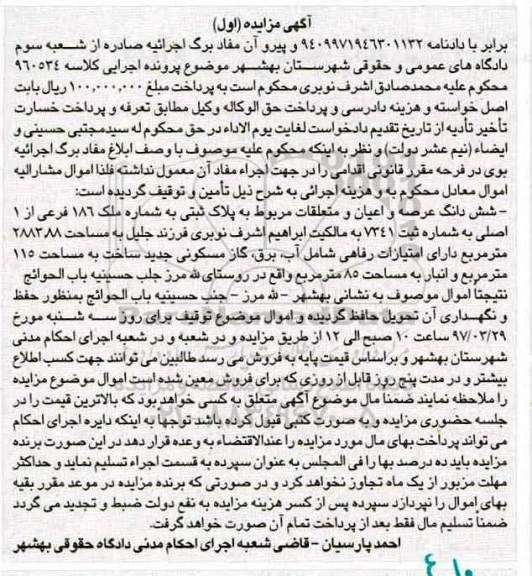 آگهی مزایده (اول)
برابر با دادنامه ۹۴۰۹۹۷۱۹۴۶۳۰۱۱۳۲ و پیرو آن مفاد برگ اجرائیه صادره از شعبه سوم
دادگاه های عمومی و حقوقی شهرستان بهشهر موضوع پرونده اجرایی کلاسه ۹۶۰۵۳۴
محکوم علیه محمدصادق اشرف نوبری محکوم است به پرداخت مبلغ ۱۰۰,۰۰۰,۰۰۰ ریال بابت
اصل خواسته و هزینه دادرسی و پرداخت حق الوکاله وکیل مطابق تعرفه و پرداخت خسارت
تأخیر تأدیه از تاریخ تقدیم دادخواست لغایت یوم الاداء در حق محکوم له سیدمجتبی حسینی و
ایضاء (نیم عشر دولت) و نظر به اینکه محکوم علیه موصوف با وصف ابلاغ مفاد برگ اجرائیه
بوی در فرجه مقرر قانونی اقدامی را در جهت اجراء مفاد آن معمول نداشته فلذا اموال مشارالیه
اموال معادل محکوم به و هزینه اجرائی به شرح ذیل تأمین و توقیف گردیده است:
- شش دانگ عرصه و اعیان و متعلقات مربوط به پلاک ثبتی به شماره ملک ۱۸۶ فرعی از ۱
اصلی به شماره ثبت ۷۳۴۱ به مالکیت ابراهیم اشرف نوبری فرزند جلیل به مساحت ۲۸۸۳,۸۸
مترمربع دارای امتیازات رفاهی شامل آب، برق، گاز مسکونی جدید ساخت به مساحت ۱۱۵
مترمربع و انبار به مساحت ۸۵ مترمربع واقع در روستای لله مرز جلب حسینیه باب الحوائج
نتیجتا اموال موصوف به نشانی بهشهر - لله مرز - جنب حسینیه باب الحوائج بمنظور حفظ
و نگهداری آن تحویل حافظ گردیده و اموال موضوع توقیف برای روز سه شنبه مورخ
۹۷/۰۳/۲۹ ساعت ۱۰ صبح الی ۱۲ از طریق مزایده و در شعبه و در شعبه اجرای احکام مدنی
شهرستان بهشهر و براساس قیمت پایه به فروش می رسد طالبین می توانند جهت کسب اطلاع
بیشتر و در مدت پنج روز قبل از روزی که برای فروش معین شده است اموال موضوع مزایده
را ملاحظه نمایند ضمنا مال موضوع آگهی متعلق به کسی خواهد بود که بالاترین قیمت را در
جلسه حضوری مزایده و یا صورت کتبی قبول کرده باشد توجها به اینکه دایره اجرای احکام
می تواند پرداخت بهای مال مورد مزایده را عندالاقتضاء به وعده قرار دهد در این صورت برنده
مزایده باید ده درصد بها را فی المجلس به عنوان سپرده به قسمت اجراء تسلیم نماید و حداکثر
مهلت مزبور از یک ماه تجاوز نخواهد کرد و در صورتی که برنده مزایده در موعد مقرر بقیه
بهای اموال را نپردازد سپرده پس از کسر هزینه مزایده به نفع دولت ضبط و تجدید می گردد
ضمناً تسلیم مال فقط بعد از پرداخت تمام آن صورت خواهد گرفت.
احمد پارسیان - قاضی شعبه اجرای احکام مدنی دادگاه حقوقی بهشهر